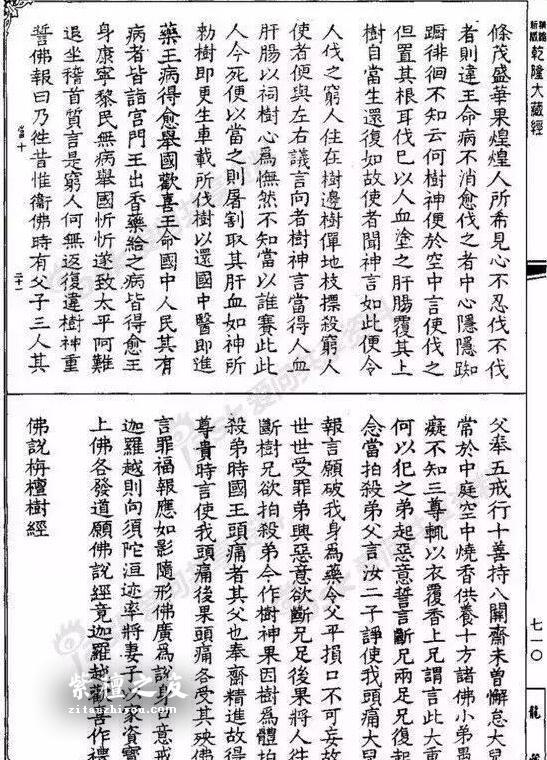 乾隆大藏經
條茂盛華果煌煌人所希見心不忍伐不伐
者則違王命病不消愈伐之者中心隱隱踟
蹰徘徊不知云何樹神便於空中言使伐之
但置其根耳伐巳以人血塗之肝腸覆其上
樹自當生還復如故使者聞神言如此便令
人伐之窮人住在樹邊樹僤地枝摽殺窮人
使者便與左右議言向者樹神言當得人血
肝腸以祠樹心爲憮然不知當以誰賽此此
人今死便以當之則屠割取其肝血如神所
勑樹即更生車載所伐樹以還國中醫即進
藥王病得愈舉國歡喜王命國中人民其有
病者皆詣宫門王出香藥給之病皆得愈王
身康寧黎民無病舉國忻忻遂致太平阿難
退坐稽首質言是窮人何無返復違樹神重
誓佛報曰乃徃昔惟衛佛時有父子三人其
父奉五戒行十善持八關齋未曽懈怠大兒
常於中庭空中燒香供養十方諸佛小弟愚
癡不知三尊輒以衣覆香上兄謂言此大重
何以犯之弟起惡意誓言斷兄兩足兄復起
念當拍殺弟父言汝二子諍使我頭痛大兒
報言願破我身爲藥令父平損口不可妄故
世世受罪弟興惡意欲斷兄足後果將人徃
斷樹兄欲拍殺弟今作樹神果因樹爲體拍
殺弟時國王頭痛者其父也奉齋精進故得
尊貴時言使我頭痛後果頭痛各受其殃佛
言罪福報應如影隨形佛廣爲說身口意戒
迦羅越則向須陀洹迹率將妻子家資寶
上佛各發道願佛說經竟迦羅越歡喜作禮
佛說栴檀樹經
七一〇
龍
紫檀之友
zitanzhiyou.com